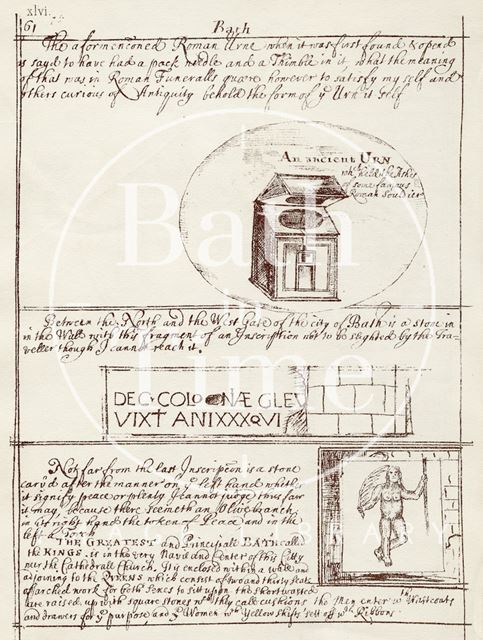 xlvi.
61
Bath
The aformenconed Roman Urne when it was first found & opend
is sayd to have had a pack needle and a Thimble in it, what the meaning
of that was in Roman Funeralls quære however to satisfy my self and
others curious of Antiquity behold the form of ye Urn it self
An ancient URN
wch held the Ashes
of some famous
Roman Souldier
Between the North and the West Gate of the city of Bath is a stone in
in the Wall with this fragment of an Inscription not to be slighted by the Tra-
veller though I cannot reach it.
DEC COLONÆ GLEV
VIXT ANIXXXQVI
Not far from the last Inscripcon is a stone
carv'd after the manner on ye left hand whither
it signify peace or plenty I cannot judge thus far
it may, because there seemeth an Olive branch
in its right hand the token of Peace and in the
left a
THE GREATEST and Principall BATH called
the KINGS, is in the very Navel and Center of this City
nye the Cathedrall Church. It is enclosed within a wall and
adjoining to the QUEENS which consist of two and thirty seats
of arched work for both Sexes to sit upon the short wasted
are raised up with square stones wch they call cushions the Men enter wth Wastcoats
and drawers for ye purpose and ye Women wth Yellow shifts sett off wth Ribbons
Bath in Time
LIBRARY